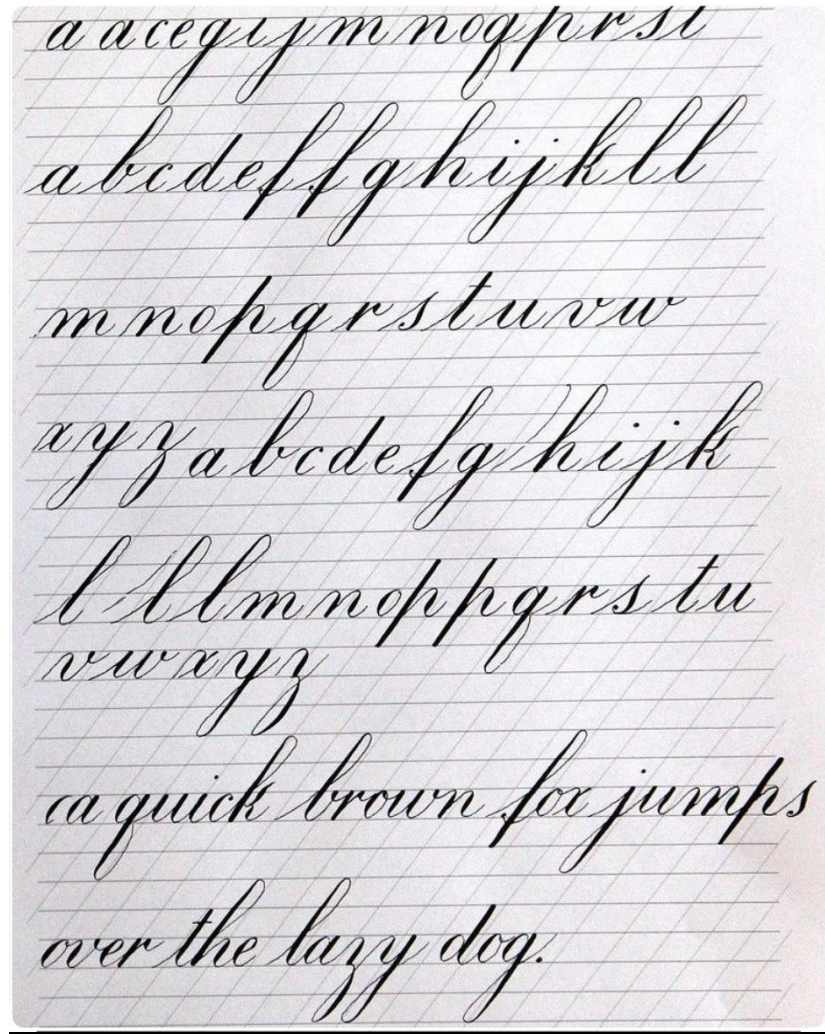 a a c e g i j m n o q p r s t
a b c d e f f g h i j k l l
m n o p q r s t u v w
x y z a b c d e f g h i j k
l l l m n o p p q r s t u
v w x y z
ca quick brown fox jumps
over the lazy dog.